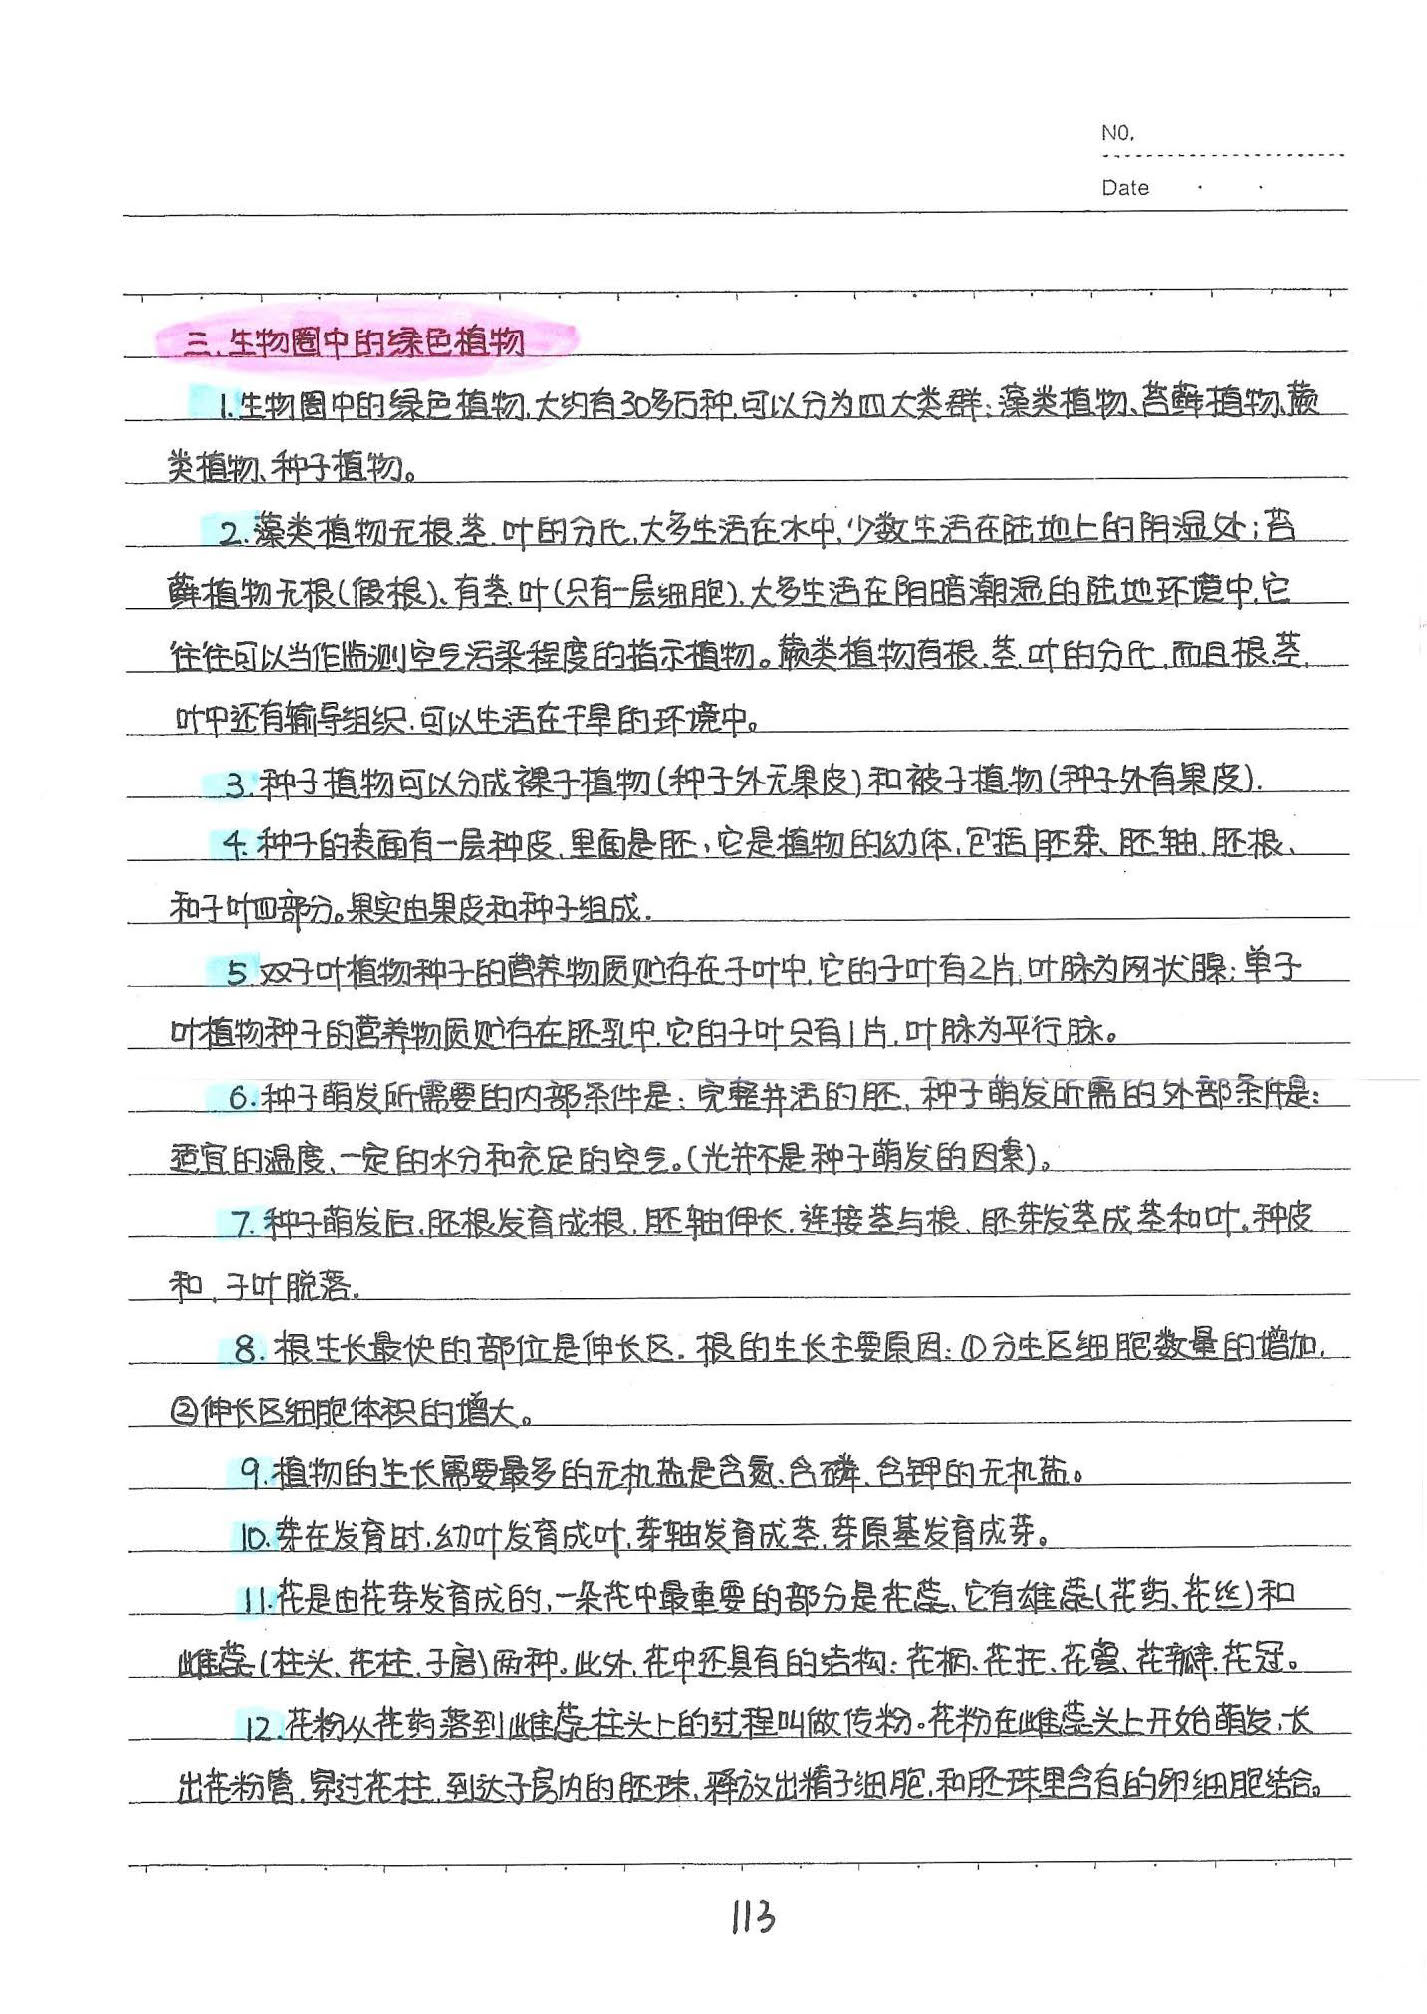 NO.
Date
三、生物圈中的绿色植物
1.生物圈中的绿色植物,大约有30多万种,可以分为四大类群:藻类植物、苔藓植物、蕨
类植物、种子植物。
2.藻类植物无根、茎、叶的分化,大多生活在水中,少数生活在陆地上的阴湿处;苔
藓植物无根(假根)、有茎、叶(只有一层细胞),大多生活在阴暗潮湿的陆地环境中,它
往往可以当作监测空气污染程度的指示植物。蕨类植物有根、茎、叶的分化,而且根、茎、
叶中还有输导组织,可以生活在干旱的环境中。
3.种子植物可以分成裸子植物(种子外无果皮)和被子植物(种子外有果皮).
4.种子的表面有一层种皮,里面是胚,它是植物的幼体,包括胚芽、胚轴、胚根、
和子叶四部分。果实由果皮和种子组成.
5.双子叶植物种子的营养物质贮存在子叶中,它的子叶有2片,叶脉为网状腺;单子
叶植物种子的营养物质贮存在胚乳中,它的子叶只有1片,叶脉为平行脉。
6.种子萌发所需要的内部条件是:完整并活的胚、种子萌发所需的外部条件是:
适宜的温度、一定的水分和充足的空气。(光并不是种子萌发的因素)。
7.种子萌发后,胚根发育成根,胚轴伸长,连接茎与根、胚芽发茎成茎和叶。种皮
和、子叶脱落.
8.根生长最快的部位是伸长区.根的生长主要原因:①分生区细胞数量的增加,
②伸长区细胞体积的增大。
9.植物的生长需要最多的无机盐是含氮、含磷、含钾的无机盐。
10.芽在发育时,幼叶发育成叶,芽轴发育成茎,芽原基发育成芽。
11.花是由花芽发育成的,一朵花中最重要的部分是花蕊,它有雄蕊(花药、花丝)和
雌蕊(柱头、花柱、子房)两种。此外,花中还具有的结构:花柄、花托、花萼、花瓣、花冠。
12.花粉从花药落到雌蕊柱头上的过程叫做传粉。花粉在雌蕊头上开始萌发,长
出花粉管,穿过花柱,到达子房内的胚珠,释放出精子细胞,和胚珠里含有的卵细胞结合。
113